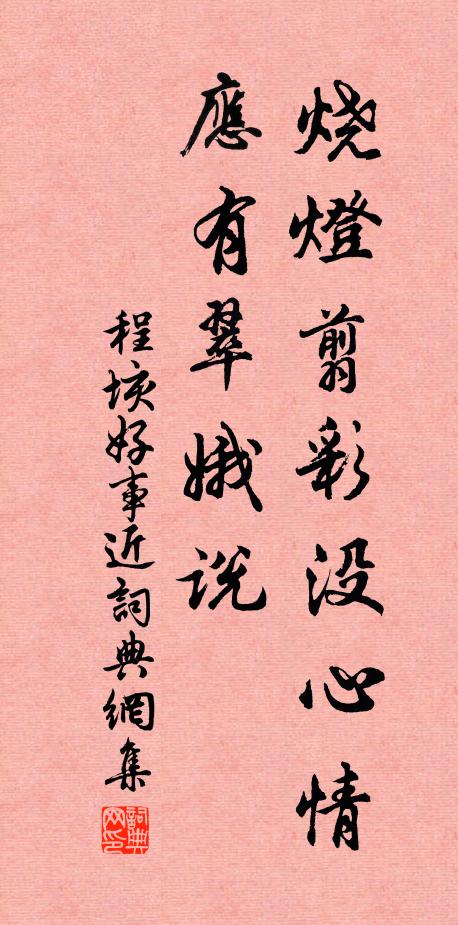 烧燈翦彩没心情
應有翠娥说
程垓好事近詞典網集
詞典网印